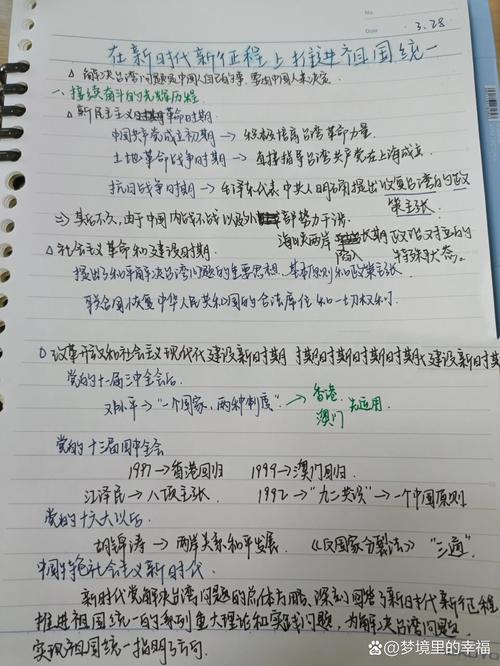 No.
Date
3.28
在新时代新征程上推进祖国统一
△ 解决台湾问题是中国人自己的事,要由中国人来决定.
一、接续奋斗的光辉历程
△ 新民主主义革命时期
中国共产党成立初期 → 积极培育台湾革命力量.
土地革命战争时期 → 直接指导台湾共产党在上海成立.
抗日战争时期 → 毛泽东代表中共人明确提出收复台湾的政
策主张.
⇒ 其后不久,由于中国内战不战以及外部势力干涉.
海峡两岸陷入长期政治对立的
特殊状态。
△ 社会主义革命和建设时期
提出了和平解决台湾问题的重要思想、基本原则和政策主张
联合国恢复中华人民共和国的合法席位和一切权利.
○ 改革开放和社会主义现代化建设新时期
党的十一届三中全会后
邓小平 → "一个国家,两种制度" → 香港 澳门 先运用
党的十三届四中全会
1997 → 香港回归 1999 → 澳门回归.
江泽民 → 八项主张. 1992 → "九二共识" → 一个中国原则
党的十六大以后
胡锦涛 → 两岸关系和平发展. 《反国家分裂法》 "三通"
中国特色社会主义新时代
新时代党解决台湾问题的总体方略、深刻回答了新时代新征程
推进祖国统一的系列重大理论和实践问题,为解决台湾问题
实现祖国统一指明方向.
百家号/梦境里的幸福